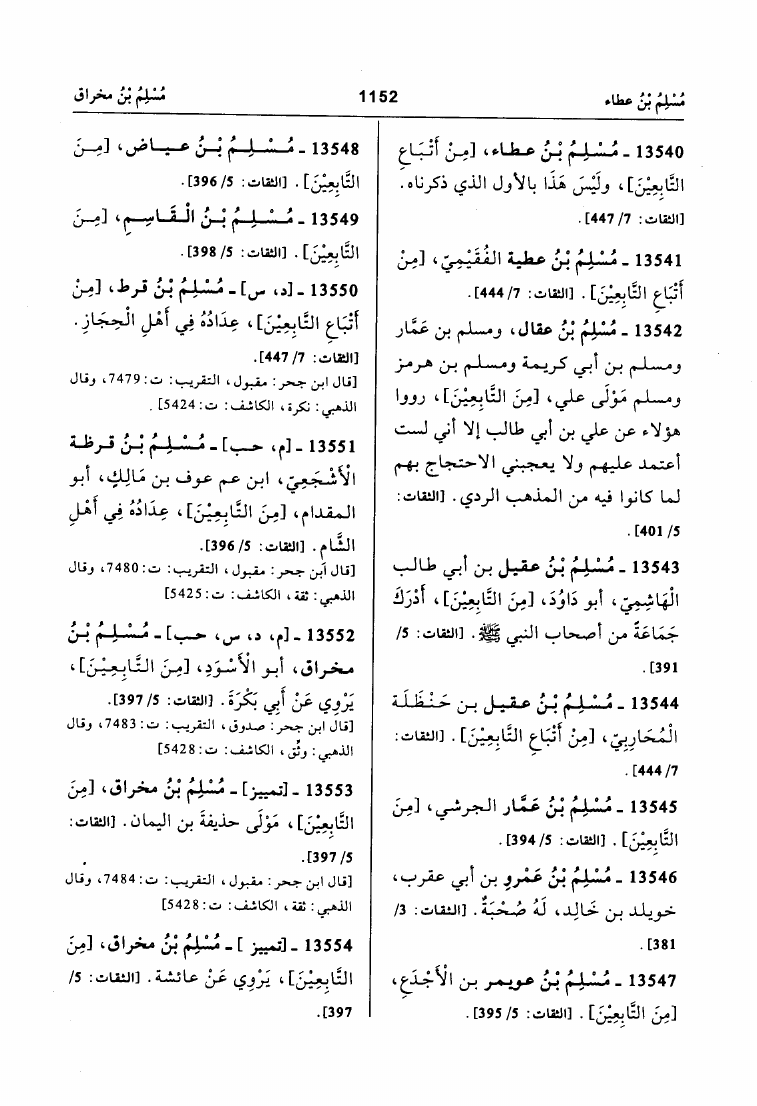 مُسْلِمُ بْنُ عطاء
1152
مُسْلِمُ بْنُ مخراق
13540 ـ مُسْلِمُ بْنُ عطاء، [مِنْ أَتْبَاعِ
التَّابِعِيْنَ]، وَلَيْسَ هَذَا بالأول الذي ذكرناه.
[الثقات: 7/ 447].
13541 ـ مُسْلِمُ بْنُ عطية الفُقَيْمِيّ، [مِنْ
أَتْبَاعِ التَّابِعِيْنَ]. [الثقات: 7/ 444].
13542 ـ مُسْلِمُ بْنُ عقال، ومسلم بن عَمَّار
ومسلم بن أبي كريمة ومسلم بن هرمز
ومسلم مَوْلَى علي، [مِنَ التَّابِعِيْنَ]، رووا
هؤلاء عن علي بن أبي طالب إلا أني لست
أعتمد عليهم ولا يعجبني الاحتجاج بهم
لما كانوا فيه من المذهب الردي. [الثقات:
5/ 401].
13543 ـ مُسْلِمُ بْنُ عقيل بن أبي طالب
الْهَاشِمِيّ، أبو دَاوُدَ، [مِنَ التَّابِعِيْنَ]، أَدْرَكَ
جَمَاعَةً من أصحاب النبي ﷺ. [الثقات: 5/
391].
13544 ـ مُسْلِمُ بْنُ عقيل بن حَنْظَلَة
الْمُحَارِبِيّ، [مِنْ أَتْبَاعِ التَّابِعِيْنَ]. [الثقات:
7/ 444].
13545 ـ مُسْلِمُ بْنُ عَمَّار الجرشي، [مِنَ
التَّابِعِيْنَ]. [الثقات: 5/ 394].
13546 ـ مُسْلِمُ بْنُ عَمْرِو بن أبي عقرب،
خويلد بن خَالِد، لَهُ صُحْبَةٌ. [الثقات: 3/
381].
13547 ـ مُسْلِمُ بْنُ عويمر بن الأَجْدَعِ،
[مِنَ التَّابِعِيْنَ]. [الثقات: 5/ 395].
13548 ـ مُسْلِمُ بْنُ عياض، [مِنَ
التَّابِعِيْنَ]. [الثقات: 5/ 396].
13549 ـ مُسْلِمُ بْنُ الْقَاسِم، [مِنَ
التَّابِعِيْنَ]. [الثقات: 5/ 398].
13550 ـ [د، س] ـ مُسْلِمُ بْنُ قرط، [مِنْ
أَتْبَاعِ التَّابِعِيْنَ]، عِدَادُهُ فِي أَهْلِ الْحِجَازِ.
[الثقات: 7/ 447].
[قال ابن حجر: مقبول، التقريب: ت: 7479، وقال
الذهبي: نكرة، الكاشف: ت: 5424].
13551 ـ [م، حب] ـ مُسْلِمُ بْنُ قرظة
الْأَشْجَعِيّ، ابن عم عوف بن مَالِكٍ، أبو
المقدام، [مِنَ التَّابِعِيْنَ]، عِدَادُهُ فِي أَهْلِ
الشَّام. [الثقات: 5/ 396].
[قال ابن حجر: مقبول، التقريب: ت: 7480، وقال
الذهبي: ثقة، الكاشف: ت: 5425]
13552 ـ [م، د، س، حب] ـ مُسْلِمُ بْنُ
مخراق، أبو الأَسْوَدِ، [مِنَ التَّابِعِيْنَ]،
يَرْوِي عَنْ أَبِي بَكْرَةَ. [الثقات: 5/ 397].
[قال ابن حجر: صدوق، التقريب: ت: 7483، وقال
الذهبي: وثق، الكاشف: ت: 5428]
13553 ـ [تمييز] ـ مُسْلِمُ بْنُ مخراق، [مِنَ
التَّابِعِيْنَ]، مَوْلَى حذيفة بن اليمان. [الثقات:
5/ 397].
[قال ابن حجر: مقبول، التقريب: ت: 7484، وقال
الذهبي: ثقة، الكاشف: ت: 5428]
13554 ـ [تمييز] ـ مُسْلِمُ بْنُ مخراق، [مِنَ
التَّابِعِيْنَ]، يَرْوِي عَنْ عائشة. [الثقات: 5/
397].